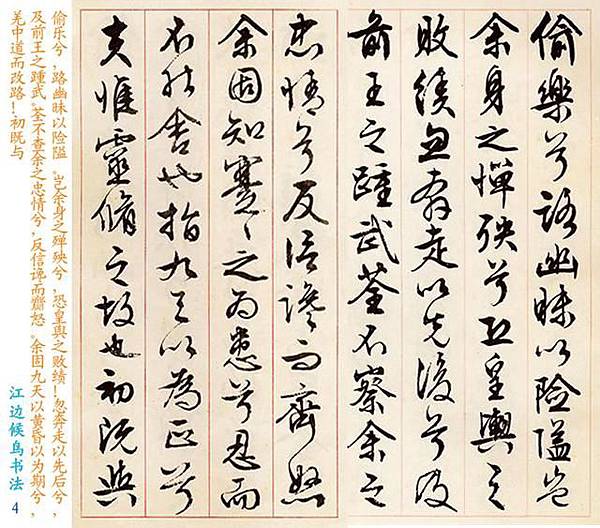 偷樂兮路幽昧以險隘豈
余身之憚殃兮恐皇輿之
敗績忽奔走以先後兮及
前王之踵武荃不察余之
忠情兮反信讒而齊怒
余固知謇々之為患兮忍而
不能舍也指九天以為正兮
夫惟靈脩之故也初既與
偷乐兮，路幽昧以险隘。岂余身之殚殃兮，恐皇舆之败绩！忽奔走以先后兮，
及前王之踵武。荃不查余之忠情兮，反信谗而齌怒。余固九天以黄昏以为期兮，
羌中道而改路！初既与
江边候鸟书法 4